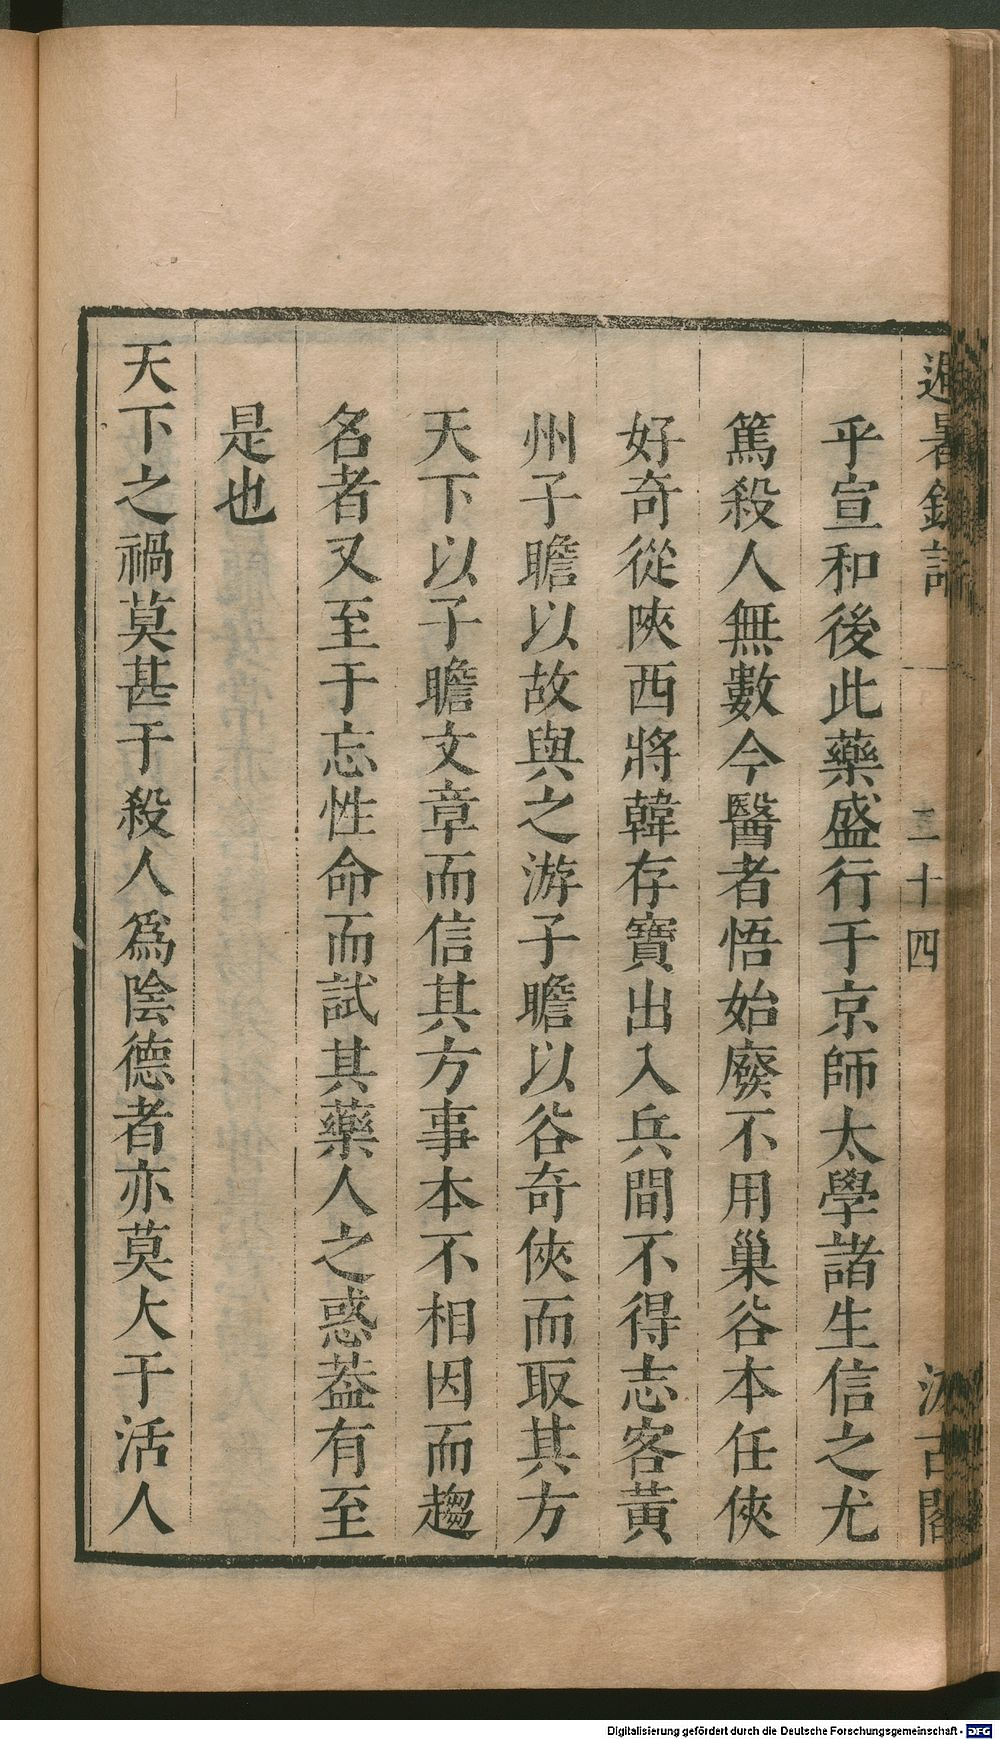 避暑録話
二十四
汲古閣
乎宣和後此藥盛行于京師太學諸生信之尤
篤殺人無數今醫者悟始廢不用巢谷本任俠
好奇從陜西將韓存寶出入兵間不得志客黃
州子瞻以故與之游子瞻以谷奇俠而取其方
天下以子瞻文章而信其方事本不相因而趨
名者又至于忘性命而試其藥人之惑葢有至
是也
天下之禍莫甚于殺人爲陰德者亦莫大于活人
Digitalisierung gefördert durch die Deutsche Forschungsgemeinschaft - DFG